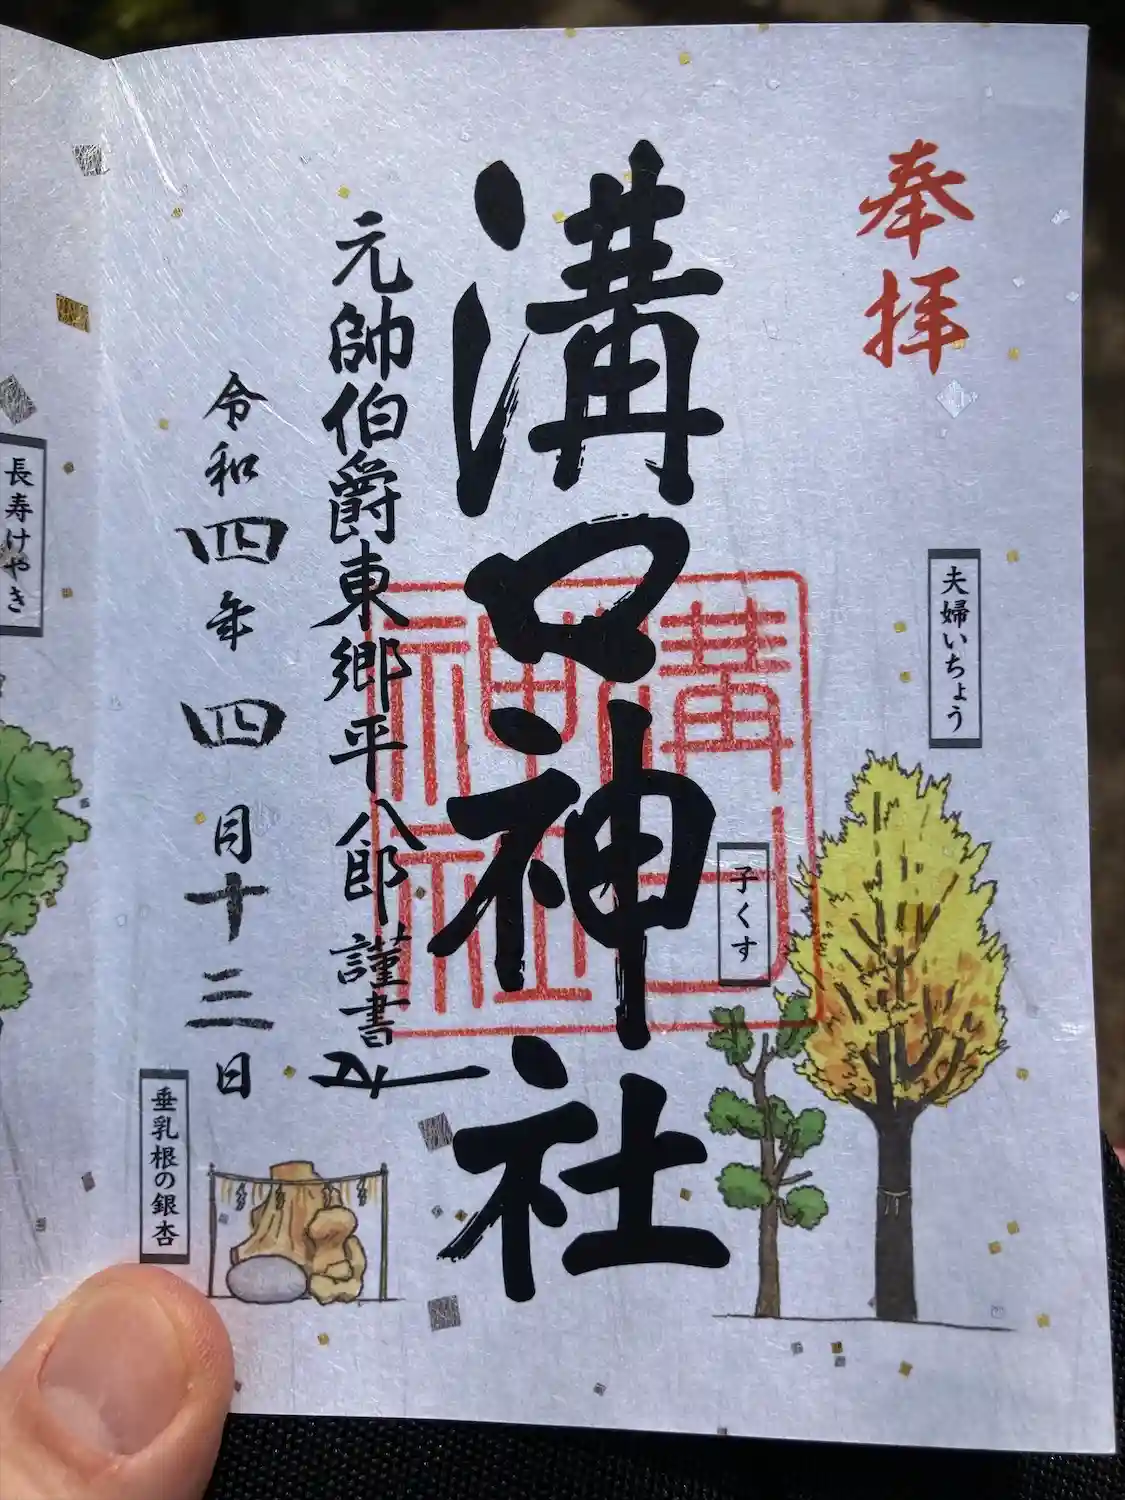 奉拝
夫婦いちょう
子くす
溝口神社
溝口神社
元帥伯爵東郷平八郎謹書
令和四年四月十三日
垂乳根の銀杏
長寿けやき